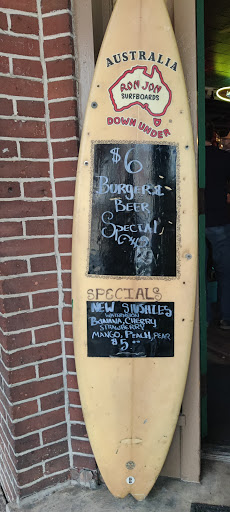 AUSTRALIA
RON JON
SURFBOARDS
DOWN UNDER
$6
BURGER &
BEER
SPECIAL
SPECIALS
NEW SLUSHIES
WATERMELON
BANANA, CHERRY
STRAWBERRY
MANGO, PEACH, PEAR
$5